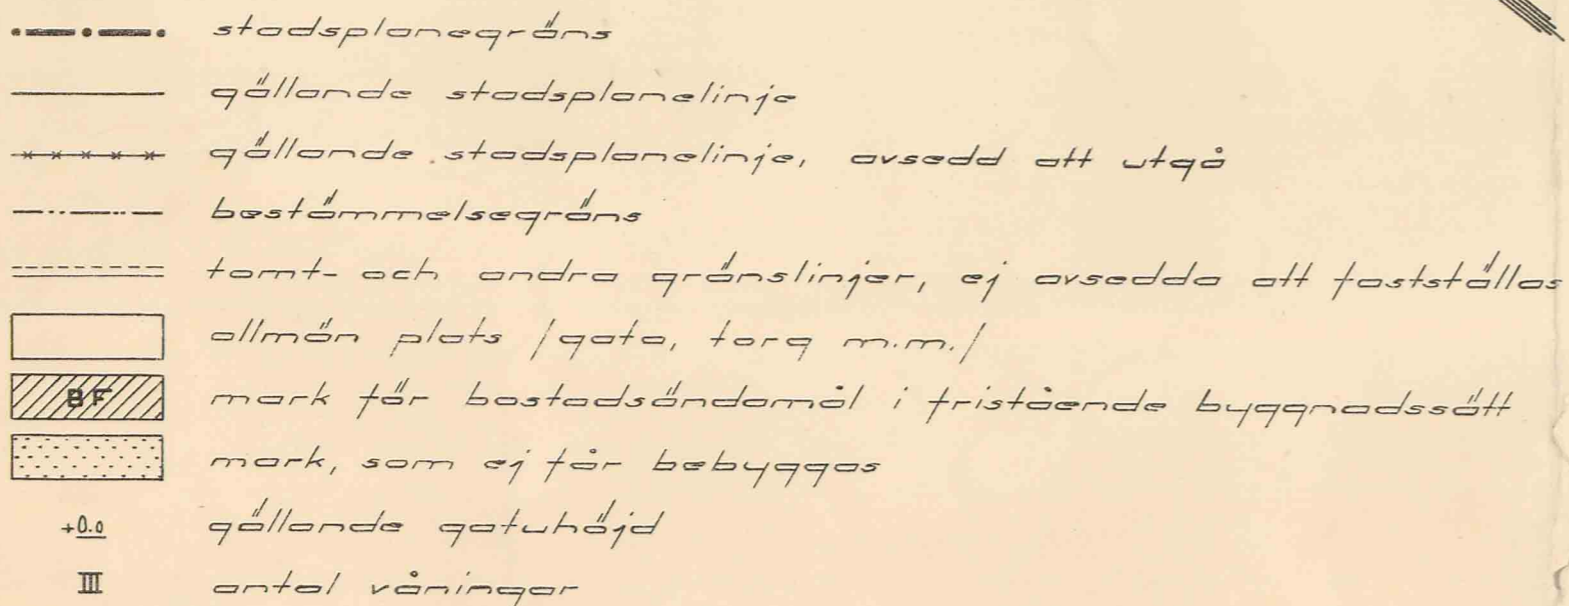 stadsplanegräns
gällande stadsplanelinje
gällande stadsplanelinje, avsedd att utgå
bestämmelsegräns
tomt- och andra gränslinjer, ej avsedda att fastställas
allmän plats /gata, torg m.m./
BF mark för bostadsändamål i fristående byggnadssätt
mark, som ej får bebyggas
+0.0 gällande gatuhöjd
III antal våningar